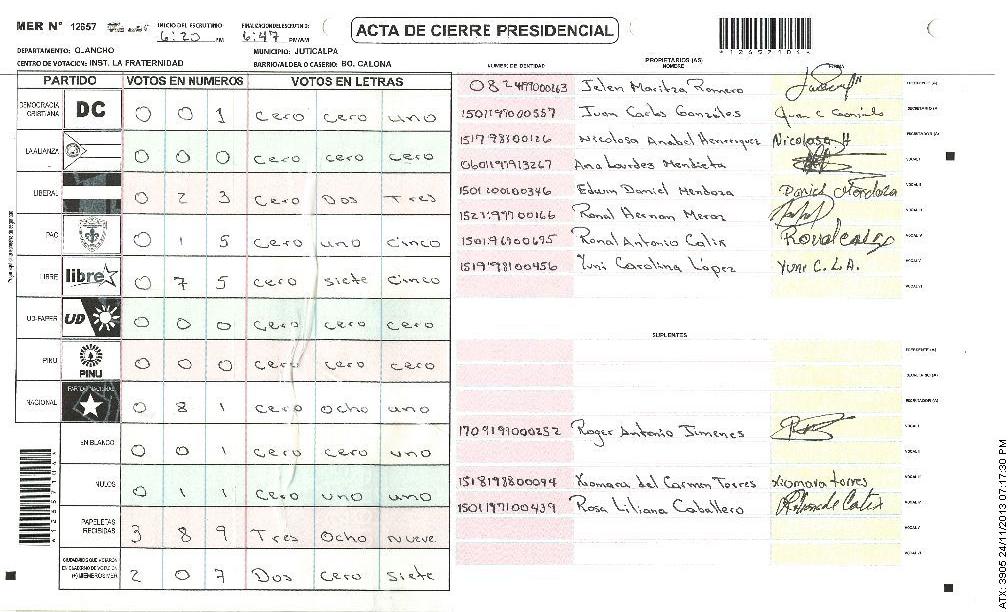 MER N° 12657 INICIO DEL ESCRUTINIO: 6:20 PM FINALIZACION ESCRUTINIO: 6:47 PM/AM
ACTA DE CIERRE PRESIDENCIAL
DEPARTAMENTO: OLANCHO MUNICIPIO: JUTICALPA
CENTRO DE VOTACION: INST. LA FRATERNIDAD BARRIO/ALDEA O CASERIO: BO. CALONA
PARTIDO VOTOS EN NUMEROS VOTOS EN LETRAS
DEMOCRACIA CRISTIANA DC 0 0 1 cero cero uno
LA ALIANZA 0 0 0 cero cero cero
LIBERAL 0 2 3 Cero Dos Tres
PAC 0 1 5 cero uno cinco
LIBRE libre 0 7 5 cero siete cinco
UD-FAPER UD 0 0 0 cero cero cero
PINU PINU 0 0 0 cero cero cero
NACIONAL PARTIDO NACIONAL 0 8 1 cero ocho uno
EN BLANCO 0 0 1 cero cero uno
NULOS 0 1 1 cero uno uno
PAPELETAS RECIBIDAS 3 8 9 Tres Ocho nueve
CIUDADANOS QUE VOTARON EN CUADERNO DE VOTACION (+) MIEMBROS MER 2 0 7 Dos cero siete
NUMERO DE IDENTIDAD PROPIETARIOS (AS) NOMBRE FIRMA
Jelen Maritza Romero
Juan Carlos Gonzales
Nicolosa Anabel Henriquez Nicolosa H
0601197913267 Ana Lourdes Mendieta
1501200100346 Edwin Daniel Mendoza Daniel Mendoza
Ronal Hernan Meroz
Ronal Antonio Calix
1519198100456 Yuni Carolina López Yuni C. L. A.
SUPLENTES
1709199000252 Roger Antonio Jimenes
1518198800094 Xiomara del Carmen Torres xiomara torres
1501197100439 Rosa Liliana Caballero
A12657104X
ATX: 3905 24/11/2013 07:17:30 PM